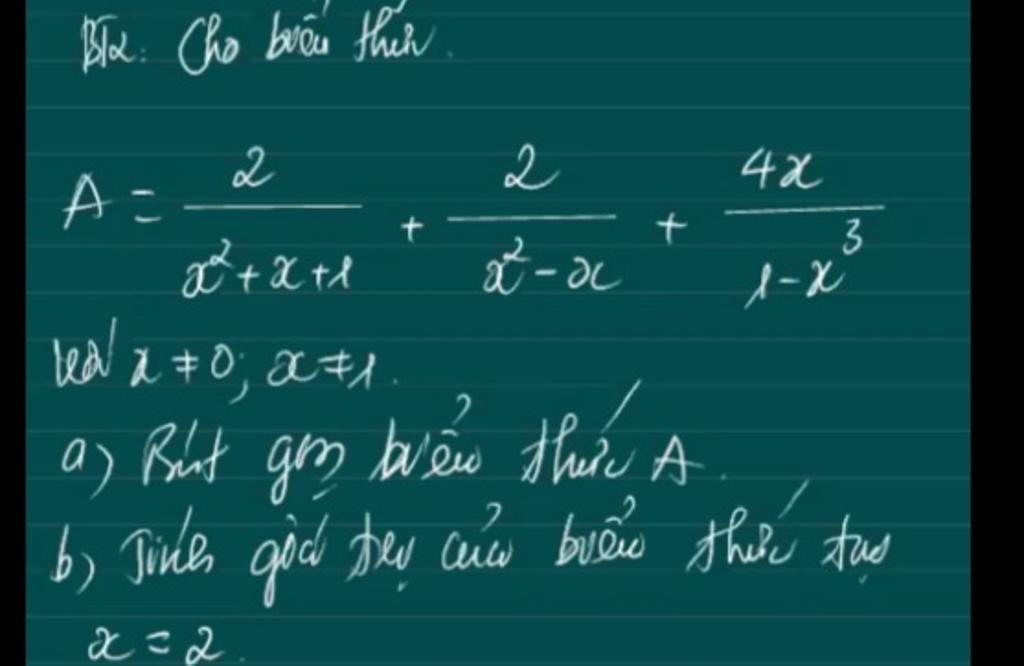 BT2: Cho biểu thức.
A = 2/(x²+x+1) + 2/(x²-x) + 4x/(1-x³)
với x ≠ 0; x ≠ 1.
a) Rút gọn biểu thức A.
b) Tính giá trị của biểu thức tại
x = 2.